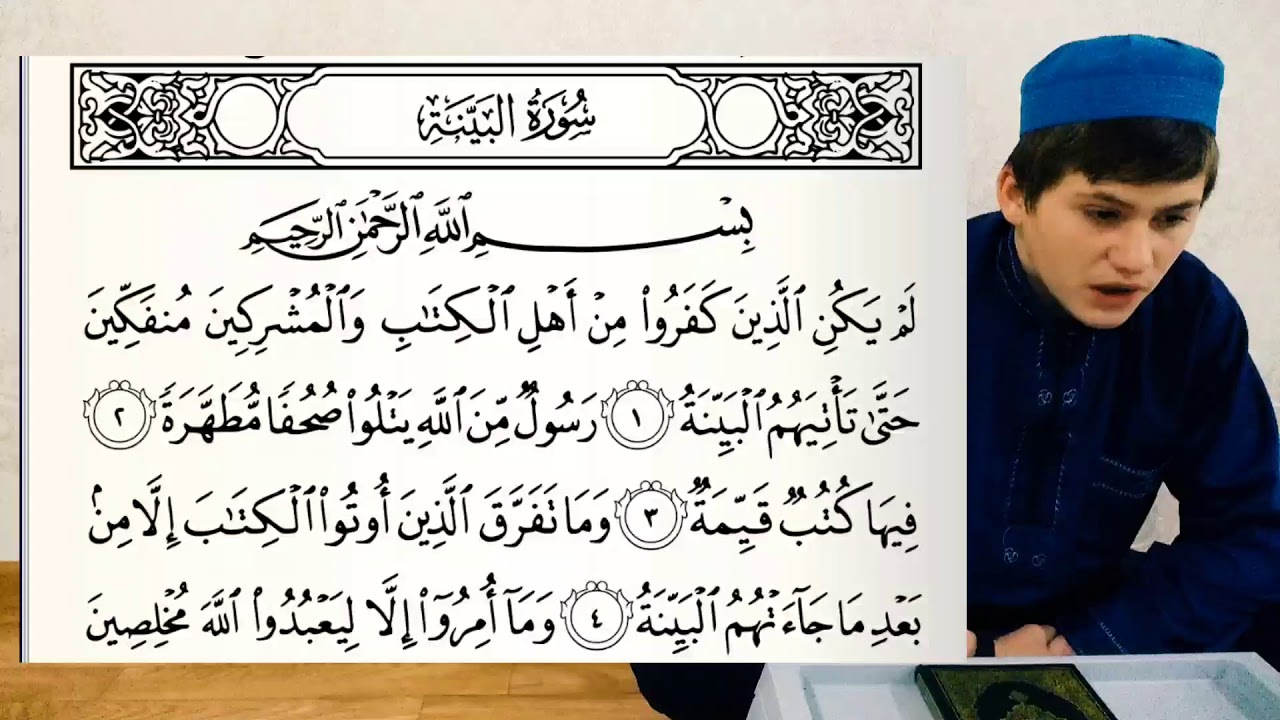 سُورَةُ البَيِّنَةِ
بِسْمِ ٱللَّهِ ٱلرَّحْمَٰنِ ٱلرَّحِيمِ
لَمْ يَكُنِ ٱلَّذِينَ كَفَرُوا۟ مِنْ أَهْلِ ٱلْكِتَٰبِ وَٱلْمُشْرِكِينَ مُنفَكِّينَ
حَتَّىٰ تَأْتِيَهُمُ ٱلْبَيِّنَةُ ١ رَسُولٌ مِّنَ ٱللَّهِ يَتْلُوا۟ صُحُفًا مُّطَهَّرَةً ٢
فِيهَا كُتُبٌ قَيِّمَةٌ ٣ وَمَا تَفَرَّقَ ٱلَّذِينَ أُوتُوا۟ ٱلْكِتَٰبَ إِلَّا مِنۢ
بَعْدِ مَا جَآءَتْهُمُ ٱلْبَيِّنَةُ ٤ وَمَآ أُمِرُوٓا۟ إِلَّا لِيَعْبُدُوا۟ ٱللَّهَ مُخْلِصِينَ